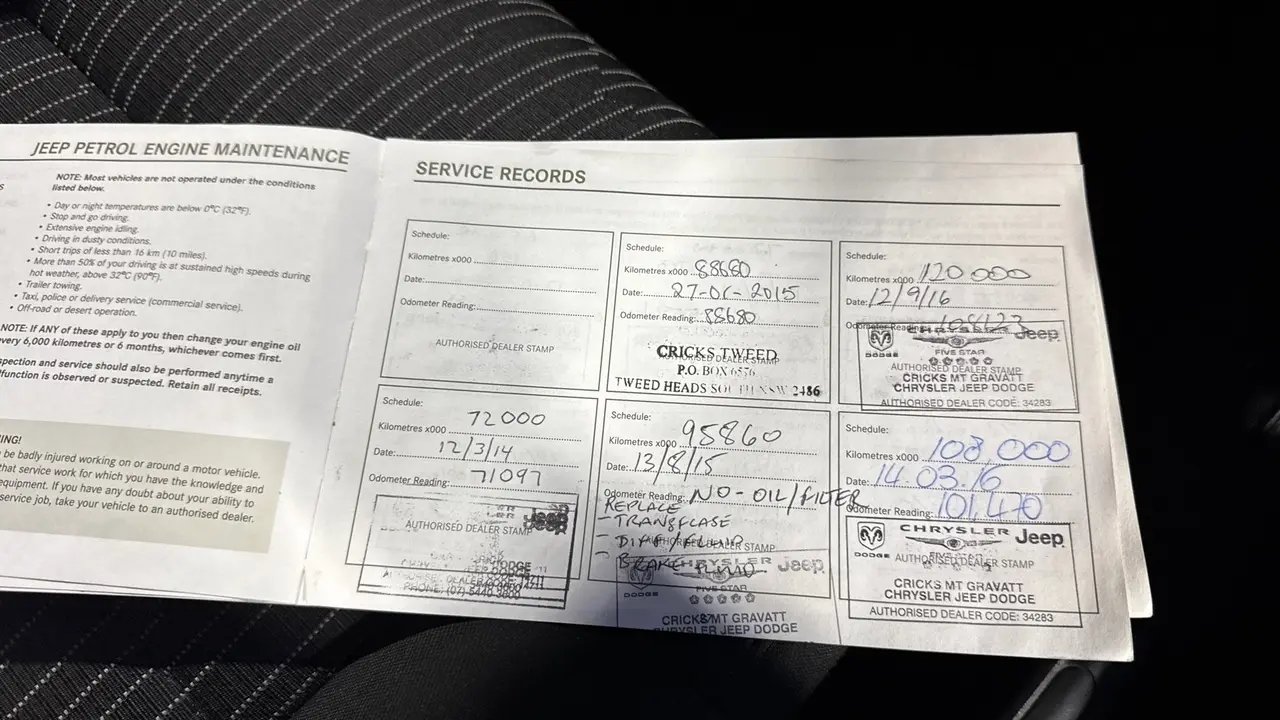 JEEP PETROL ENGINE MAINTENANCE
NOTE: Most vehicles are not operated under the conditions
listed below.
• Day or night temperatures are below 0°C (32°F).
• Stop and go driving.
• Extensive engine idling.
• Driving in dusty conditions.
• Short trips of less than 16 km (10 miles).
• More than 50% of your driving is at sustained high speeds during
hot weather, above 32°C (90°F).
• Trailer towing.
• Taxi, police or delivery service (commercial service).
• Off-road or desert operation.
NOTE: If ANY of these apply to you then change your engine oil
every 6,000 kilometres or 6 months, whichever comes first.
spection and service should also be performed anytime a
function is observed or suspected. Retain all receipts.
ING!
be badly injured working on or around a motor vehicle.
that service work for which you have the knowledge and
equipment. If you have any doubt about your ability to
service job, take your vehicle to an authorised dealer.
SERVICE RECORDS
Schedule:
Kilometres x000
Date:
Odometer Reading:
AUTHORISED DEALER STAMP
Schedule:
Kilometres x000 88680
Date: 27-01-2015
Odometer Reading: 88680
AUTHORISED DEALER STAMP
CRICKS TWEED
P.O. BOX 6576
TWEED HEADS SOUTH NSW 2486
Schedule:
Kilometres x000 120 000
Date: 12/9/16
Odometer Reading: 108123
CHRYSLER Jeep
DODGE
FIVE STAR
AUTHORISED DEALER STAMP
CRICKS MT GRAVATT
CHRYSLER JEEP DODGE
AUTHORISED DEALER CODE: 34283
Schedule:
Kilometres x000 72000
Date: 12/3/14
Odometer Reading: 71097
Jeep
AUTHORISED DEALER STAMP
DODGE
PHONE: (07) 5440 3800
Schedule:
Kilometres x000 95860
Date: 13/8/15
Odometer Reading: NO - OIL/FILTER
REPLACE
- TRANSFCASE
- DIFF/FLUID
- BRAKE FLUID
AUTHORISED DEALER STAMP
CHRYSLER Jeep
DODGE
FIVE STAR
CRICKS MT GRAVATT
CHRYSLER JEEP DODGE
Schedule:
Kilometres x000 108,000
Date: 14.03.16
Odometer Reading: 101,470
CHRYSLER Jeep
DODGE
FIVE STAR
AUTHORISED DEALER STAMP
CRICKS MT GRAVATT
CHRYSLER JEEP DODGE
AUTHORISED DEALER CODE: 34283